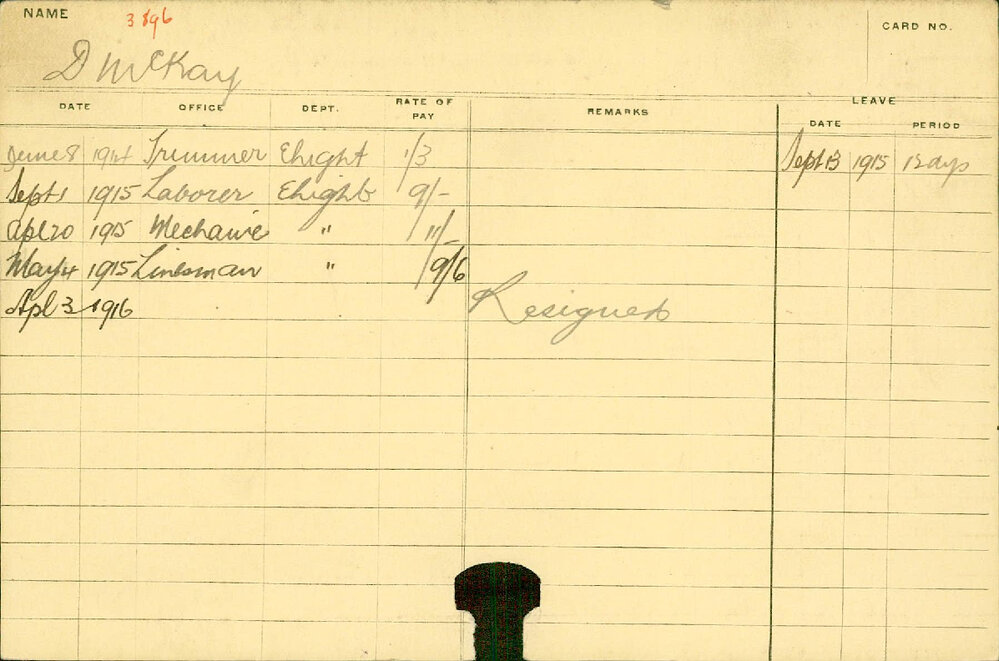 NAME 3896 CARD NO.
D McKay
DATE OFFICE DEPT. RATE OF PAY REMARKS LEAVE
DATE PERIOD
June 8 1914 Trimmer Elight 1/3 Sept 13 1915 12 days
Sept 1 1915 Laborer Elight 9/-
Apl 20 1915 Mechanic " 11/-
May 4 1915 Linesman " 9/6
Apl 3 1916 Resigned